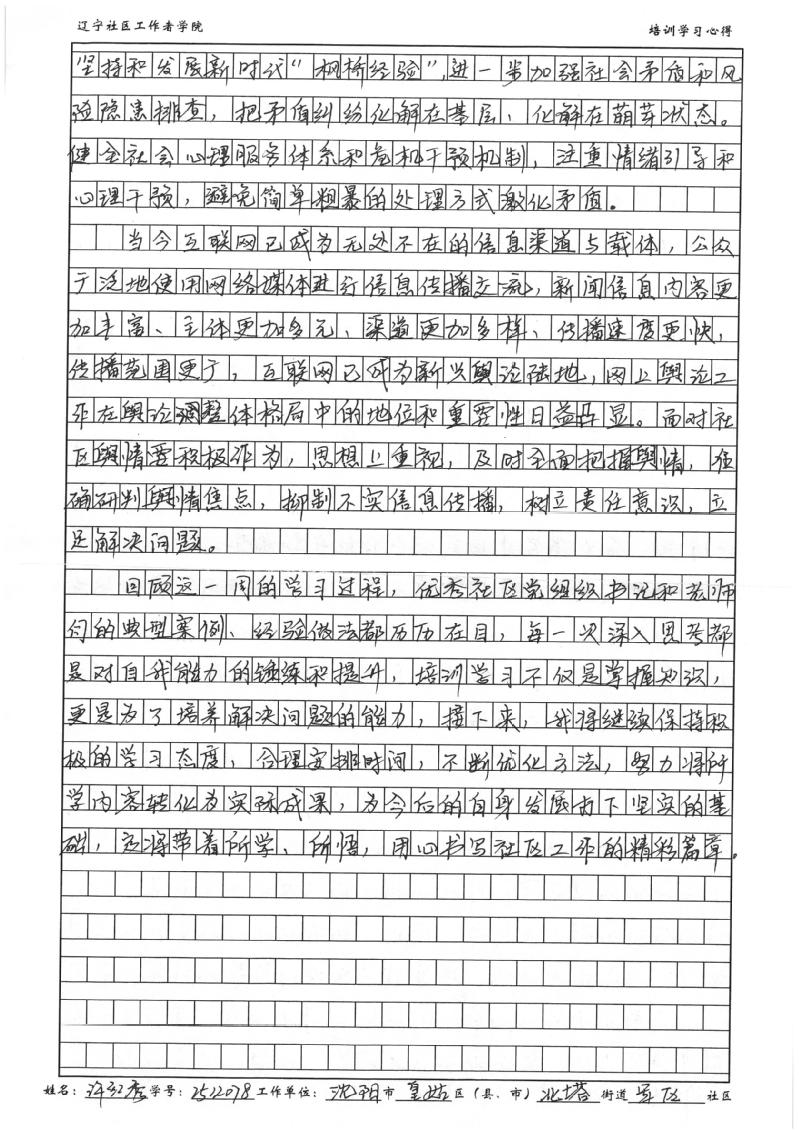 辽宁社区工作者学院 培训学习心得
坚持和发展新时代“枫桥经验”,进一步加强社会矛盾和风
险隐患排查，把矛盾纠纷化解在基层、化解在萌芽状态。
健全社会心理服务体系和危机干预机制，注重情绪引导和
心理干预，避免简单粗暴的处理方式激化矛盾。
当今互联网已成为无处不在的信息渠道与载体，公众
广泛地使用网络媒体进行信息传播交流，新闻信息内容更
加丰富、主体更加多元、渠道更加多样、传播速度更快，
传播范围更广，互联网已成为新兴舆论陆地，网上舆论工
作在舆论调整体格局中的地位和重要性日益凸显。面对社
区舆情要积极作为，思想上重视，及时全面把握舆情，准
确研判舆情焦点，抑制不实信息传播，树立责任意识，立
足解决问题。
回顾这一周的学习过程，优秀社区党组织书记和老师
们的典型案例、经验做法都历历在目，每一次深入思考都
是对自我能力的锤练和提升，培训学习不仅是掌握知识，
更是为了培养解决问题的能力，接下来，我将继续保持积
极的学习态度，合理安排时间，不断优化方法，努力将所
学内容转化为实际成果，为今后的自身发展打下坚实的基
础，定将带着所学、所悟，用心书写社区工作的精彩篇章。
姓名：许红 学号：2522078 工作单位：沈阳市皇姑区（县、市）北塔街道 社区